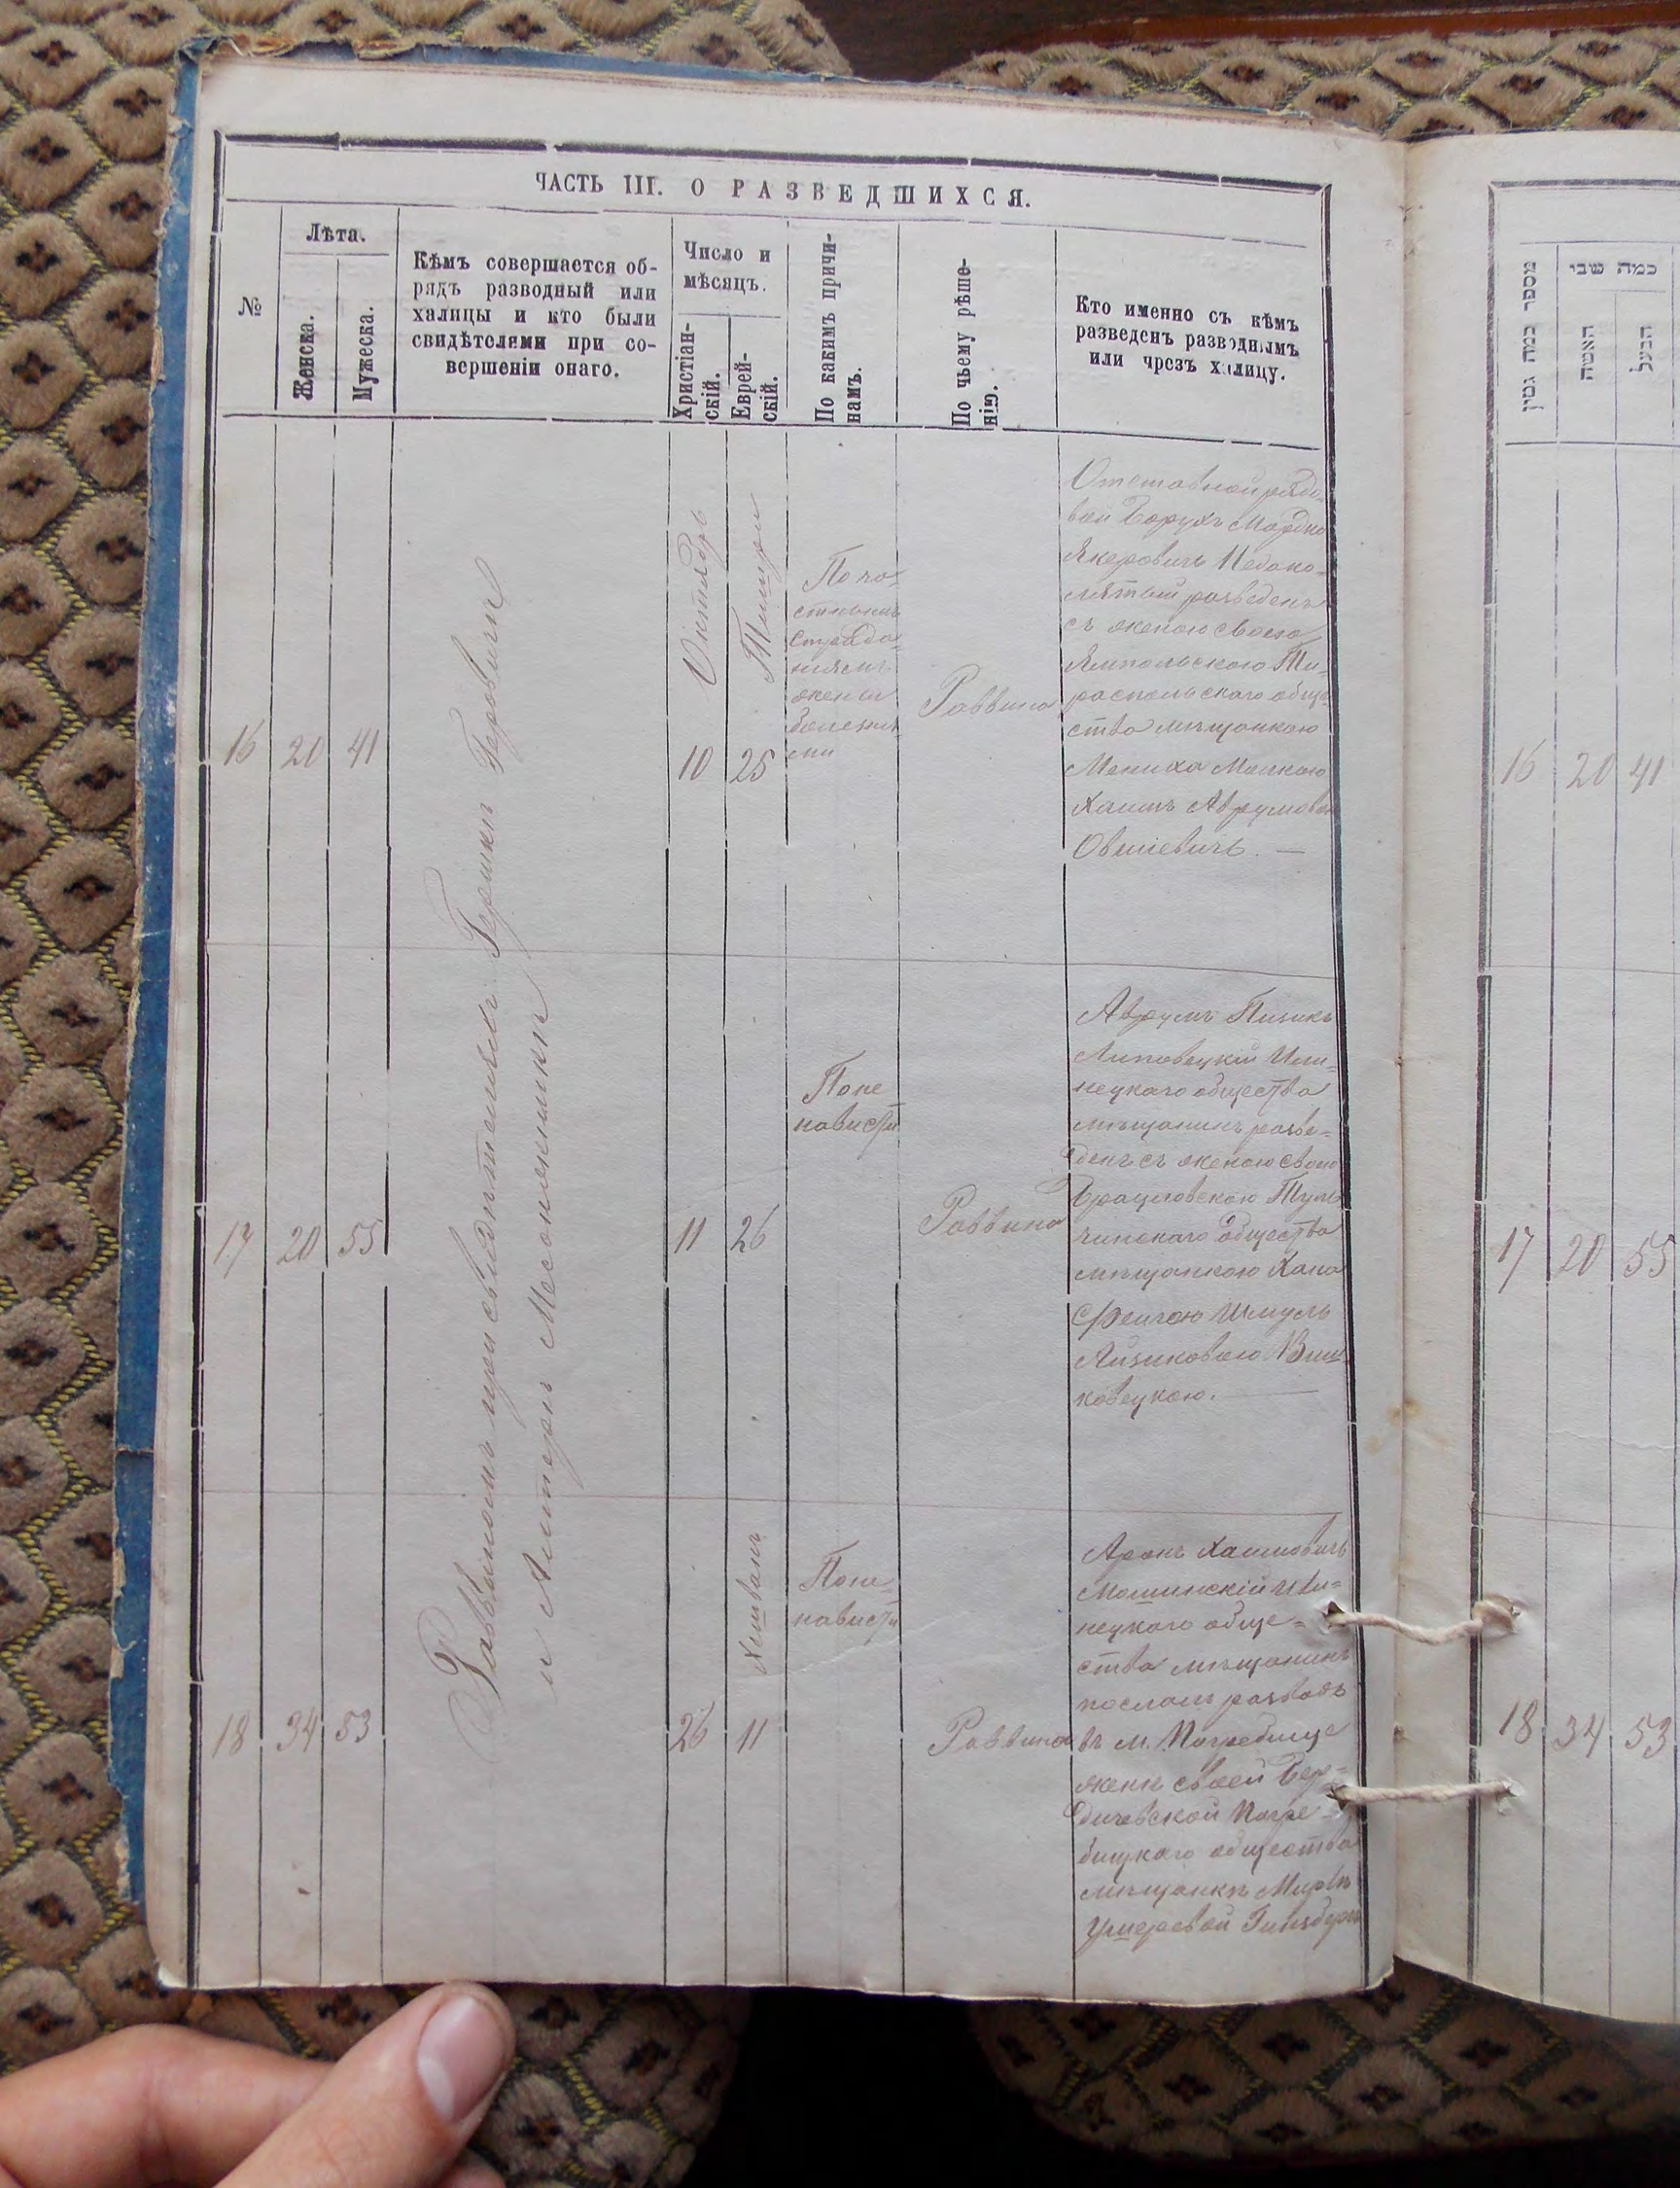 ЧАСТЬ III. О РАЗВЕДШИХСЯ.
№
Лѣта.
Женска.
Мужеска.
Кѣмъ совершается об-
рядъ разводный или
халицы и кто были
свидѣтелями при со-
вершеніи онаго.
Число и
мѣсяцъ.
Христіан-
скій.
Еврей-
скій.
По какимъ причи-
намъ.
По чьему рѣше-
нію.
Кто именно съ кѣмъ
разведенъ разводнымъ
или чрезъ халицу.
Раввиномъ при свидѣтеляхъ Гершкѣ Геровичѣ
и Алтеръ
16
20
41
Октябрь
10
Тишри
25
По ча-
стнымъ
страда-
ніямъ
жены
болезня
ми
Раввина
Отставной рядо-
вой Борухъ Мордко
Янкеровичъ
разведенъ
съ женою своею
Ямпольскою Ти-
распольскаго обще
ства мѣщанкою
Мениха Малкою
Хаимъ Аврумова
Овшіевичъ. —
17
20
55
11
26
Поне
нависти
Раввина
Аврумъ
Липовецкій Или-
нецкаго общества
мѣщанинъ разве-
денъ съ женою своею
Брацловскою Туль
чинскаго общества
мѣщанкою Хана
Фейгою Шмуль
Айзиковою Виш-
ковецкою. —
18
34
53
26
Хешванъ
11
Поне-
нависти
Раввина
Аронъ Хаимовичъ
Или-
нецкаго обще-
ства мѣщанинъ
послалъ разводъ
въ м. Погребище
женѣ своей Бер-
дичевской Погре-
бищкаго общества
мѣщанкѣ
Ушеровой Гинзберъ
מספר כמה גטין
כמה שני
האשה
הבעל
16
20
41
17
20
55
18
34
53